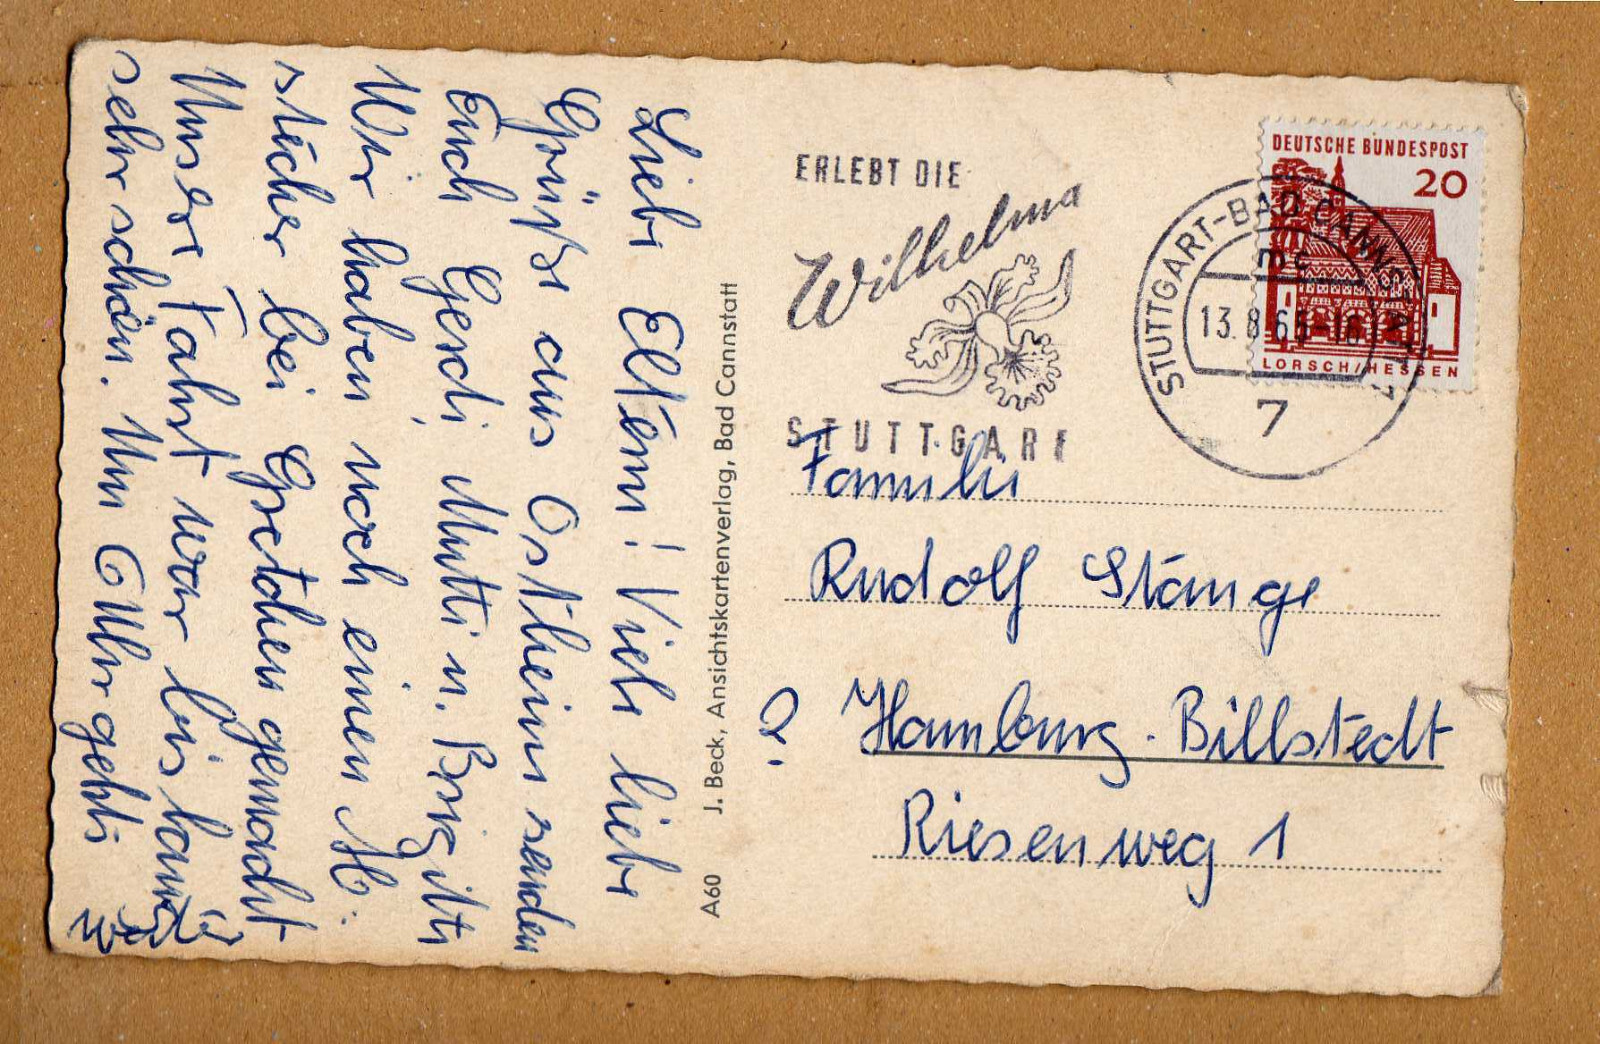 Liebe Eltern! Viele liebe
Grüße aus Ostheim senden
Euch Gerdi, Mutti u. Brigitte
Wir haben noch einen Ab-
stecher bei Gretchen gemacht
Unsere Fahrt war bislang
sehr schön. Um 6 Uhr gehts
A60 J. Beck, Ansichtskartenverlag, Bad Cannstatt
ERLEBT DIE
Wilhelma
STUTTGART
DEUTSCHE BUNDESPOST
20
LORSCH/HESSEN
STUTTGART-BAD CANNSTATT 2
13.8.65-16
7
Familie
Rudolf Stange
2. Hamburg-Billstedt
Riesenweg 1